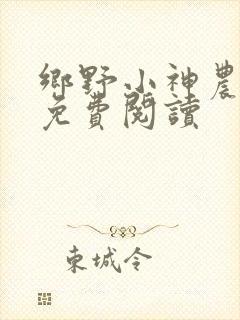 鄉野小神農
免費閱讀
東城令